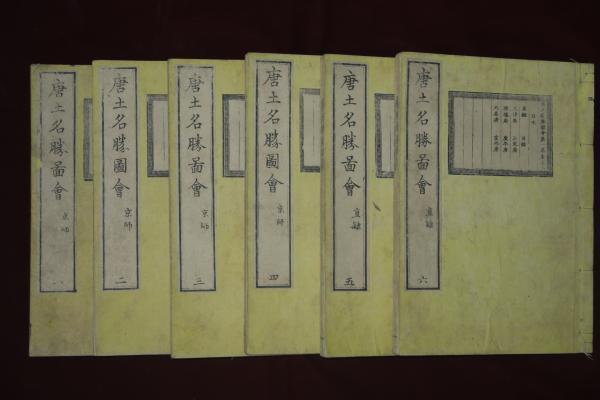 唐土名勝啚會
京師
一
唐土名勝圖會
京師
二
唐土名勝啚會
京師
三
唐土名勝圖會
京師
四
唐土名勝啚會
直隸
五
唐土名勝啚會
直隸
六